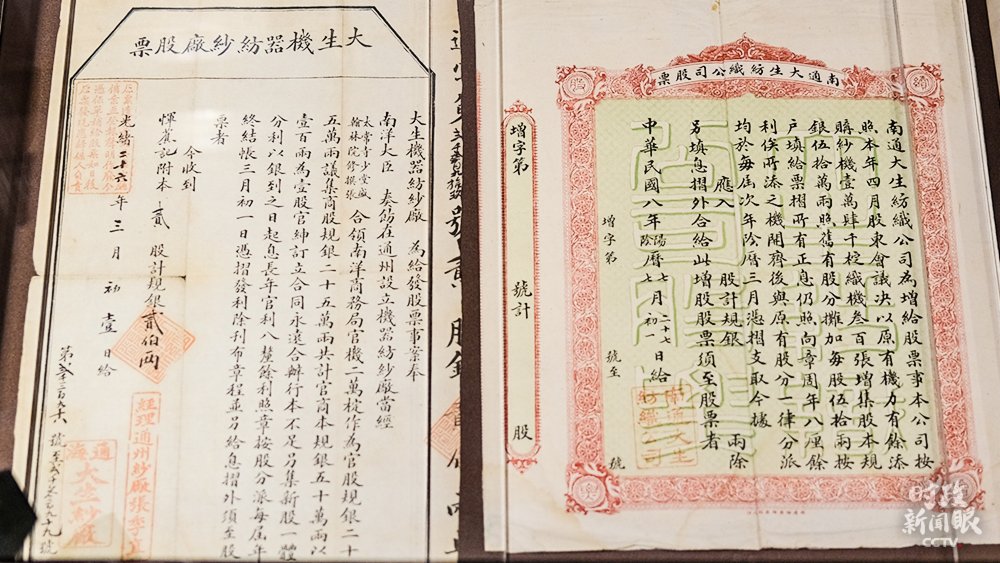 大生機器紡紗廠股票
大生機器紡紗廠 為給發股票事案奉
南洋大臣 奏飭在通州設立機器紡紗廠當經
太常寺堂盛
翰林院修撰張
合領南洋商務局官機二萬梃作為官股規銀二十
五萬兩議集商股規銀二十五萬兩共計官商本規銀五十萬兩以
壹百兩為壹股官紳訂立合同永遠合辦行本不足另集新股一體
分利以銀到之日起息長年官利八釐餘利照章按股分派每屆年
終結帳三月初一日憑摺發利除刊布章程並另給息摺外須至股
票者
今收到
惲莧記附本 貳 股計規銀貳伯兩
光緒二十六年三月初壹日給
經理通州紗廠張季直
通海
大生紗廠
南通大生紡織公司股票
南通大生紡織公司為增給股票事本公司按
照本年四月股東會議決以原有機力有餘添
購紗機壹萬肆千梃織機叁百張增集股本規
銀伍拾萬兩照舊有股分攤加每股伍拾兩按
戶填給票摺所有正息仍照向章周年八厘餘
利俟所添之機開齊後與原有股分一律分派
均於每屆次年陰曆三月憑摺支取今據
應入 股計規銀 兩除
另填息摺外合給此增股股票須至股票者
中華民國八年陽曆七月二十七日給
陰曆七月初一
南通大生
紡織公司
增字第 號至 號
增字第 號計 股
时政
新闻眼
CCTV